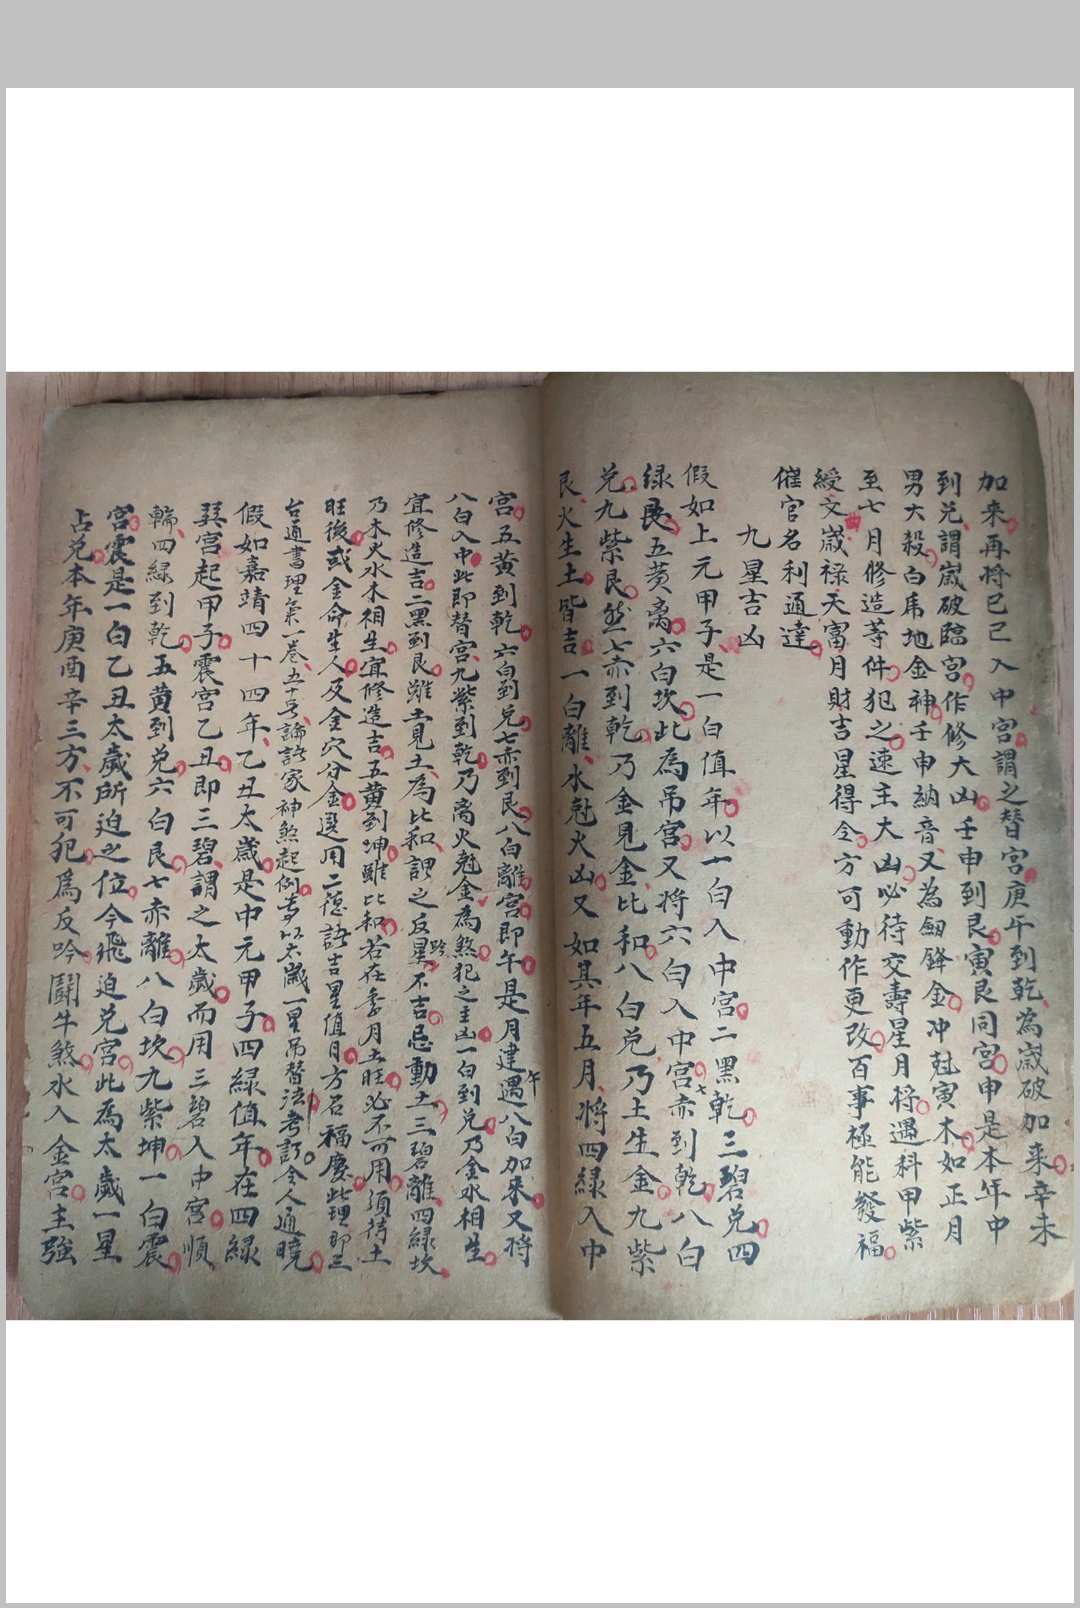 加来再将己巳入中宮謂之替宮庚午到乾為歲破加来辛未
到兑謂歲破臨宮作修大凶壬申到艮寅艮同宮申是本年中
男大殺白虎地金神壬申納音又為劒鋒金冲尅寅木如正月
至七月修造等件犯之速主大凶必待交壽星月将遇科甲紫
綬文歲禄天富月財吉星得令方可動作更改百事極能發福
催官名利通達
九星吉凶
假如上元甲子是一白值年以一白入中宮二黑乾三碧兑四
緑艮五黄离六白坎此為吊宮又将六白入中宮七赤到乾八白
兑九紫艮然七赤到乾乃金見金比和八白兑乃土生金九紫
艮火生土皆吉一白離水尅火凶又如其年五月将四緑入中
宮五黄到乾六白到兑七赤到艮八白離宮即午是月建遇八白加来又将
八白入中此即替宮九紫到乾乃离火尅金為煞犯之主凶一白到兑乃金水相生
宜修造吉二黑到艮雖土見土為比和謂之反星不吉忌動土三碧離四緑坎
乃木火水木相生宜修造吉五黄到坤雖比和若在季月土旺必不可用須待土
旺後或金命生人及金穴分金選用二德諸吉星值月方召福慶此理即三
台通書理氣一卷五十号論諸家神煞起例多以太歲一星吊替法考訂令人通曉
假如嘉靖四十四年乙丑太歲是中元甲子四緑值年在四緑
巽宮起甲子震宮乙丑即三碧謂之太歲而用三碧入中宮順
輪四緑到乾五黄到兑六白艮七赤離八白坎九紫坤一白震
宮震是一白乙丑太歲所迫之位今飛迫兑宮此為太歲一星
占兑本年庚酉辛三方不可犯為反吟鬪牛煞水入金宮主強